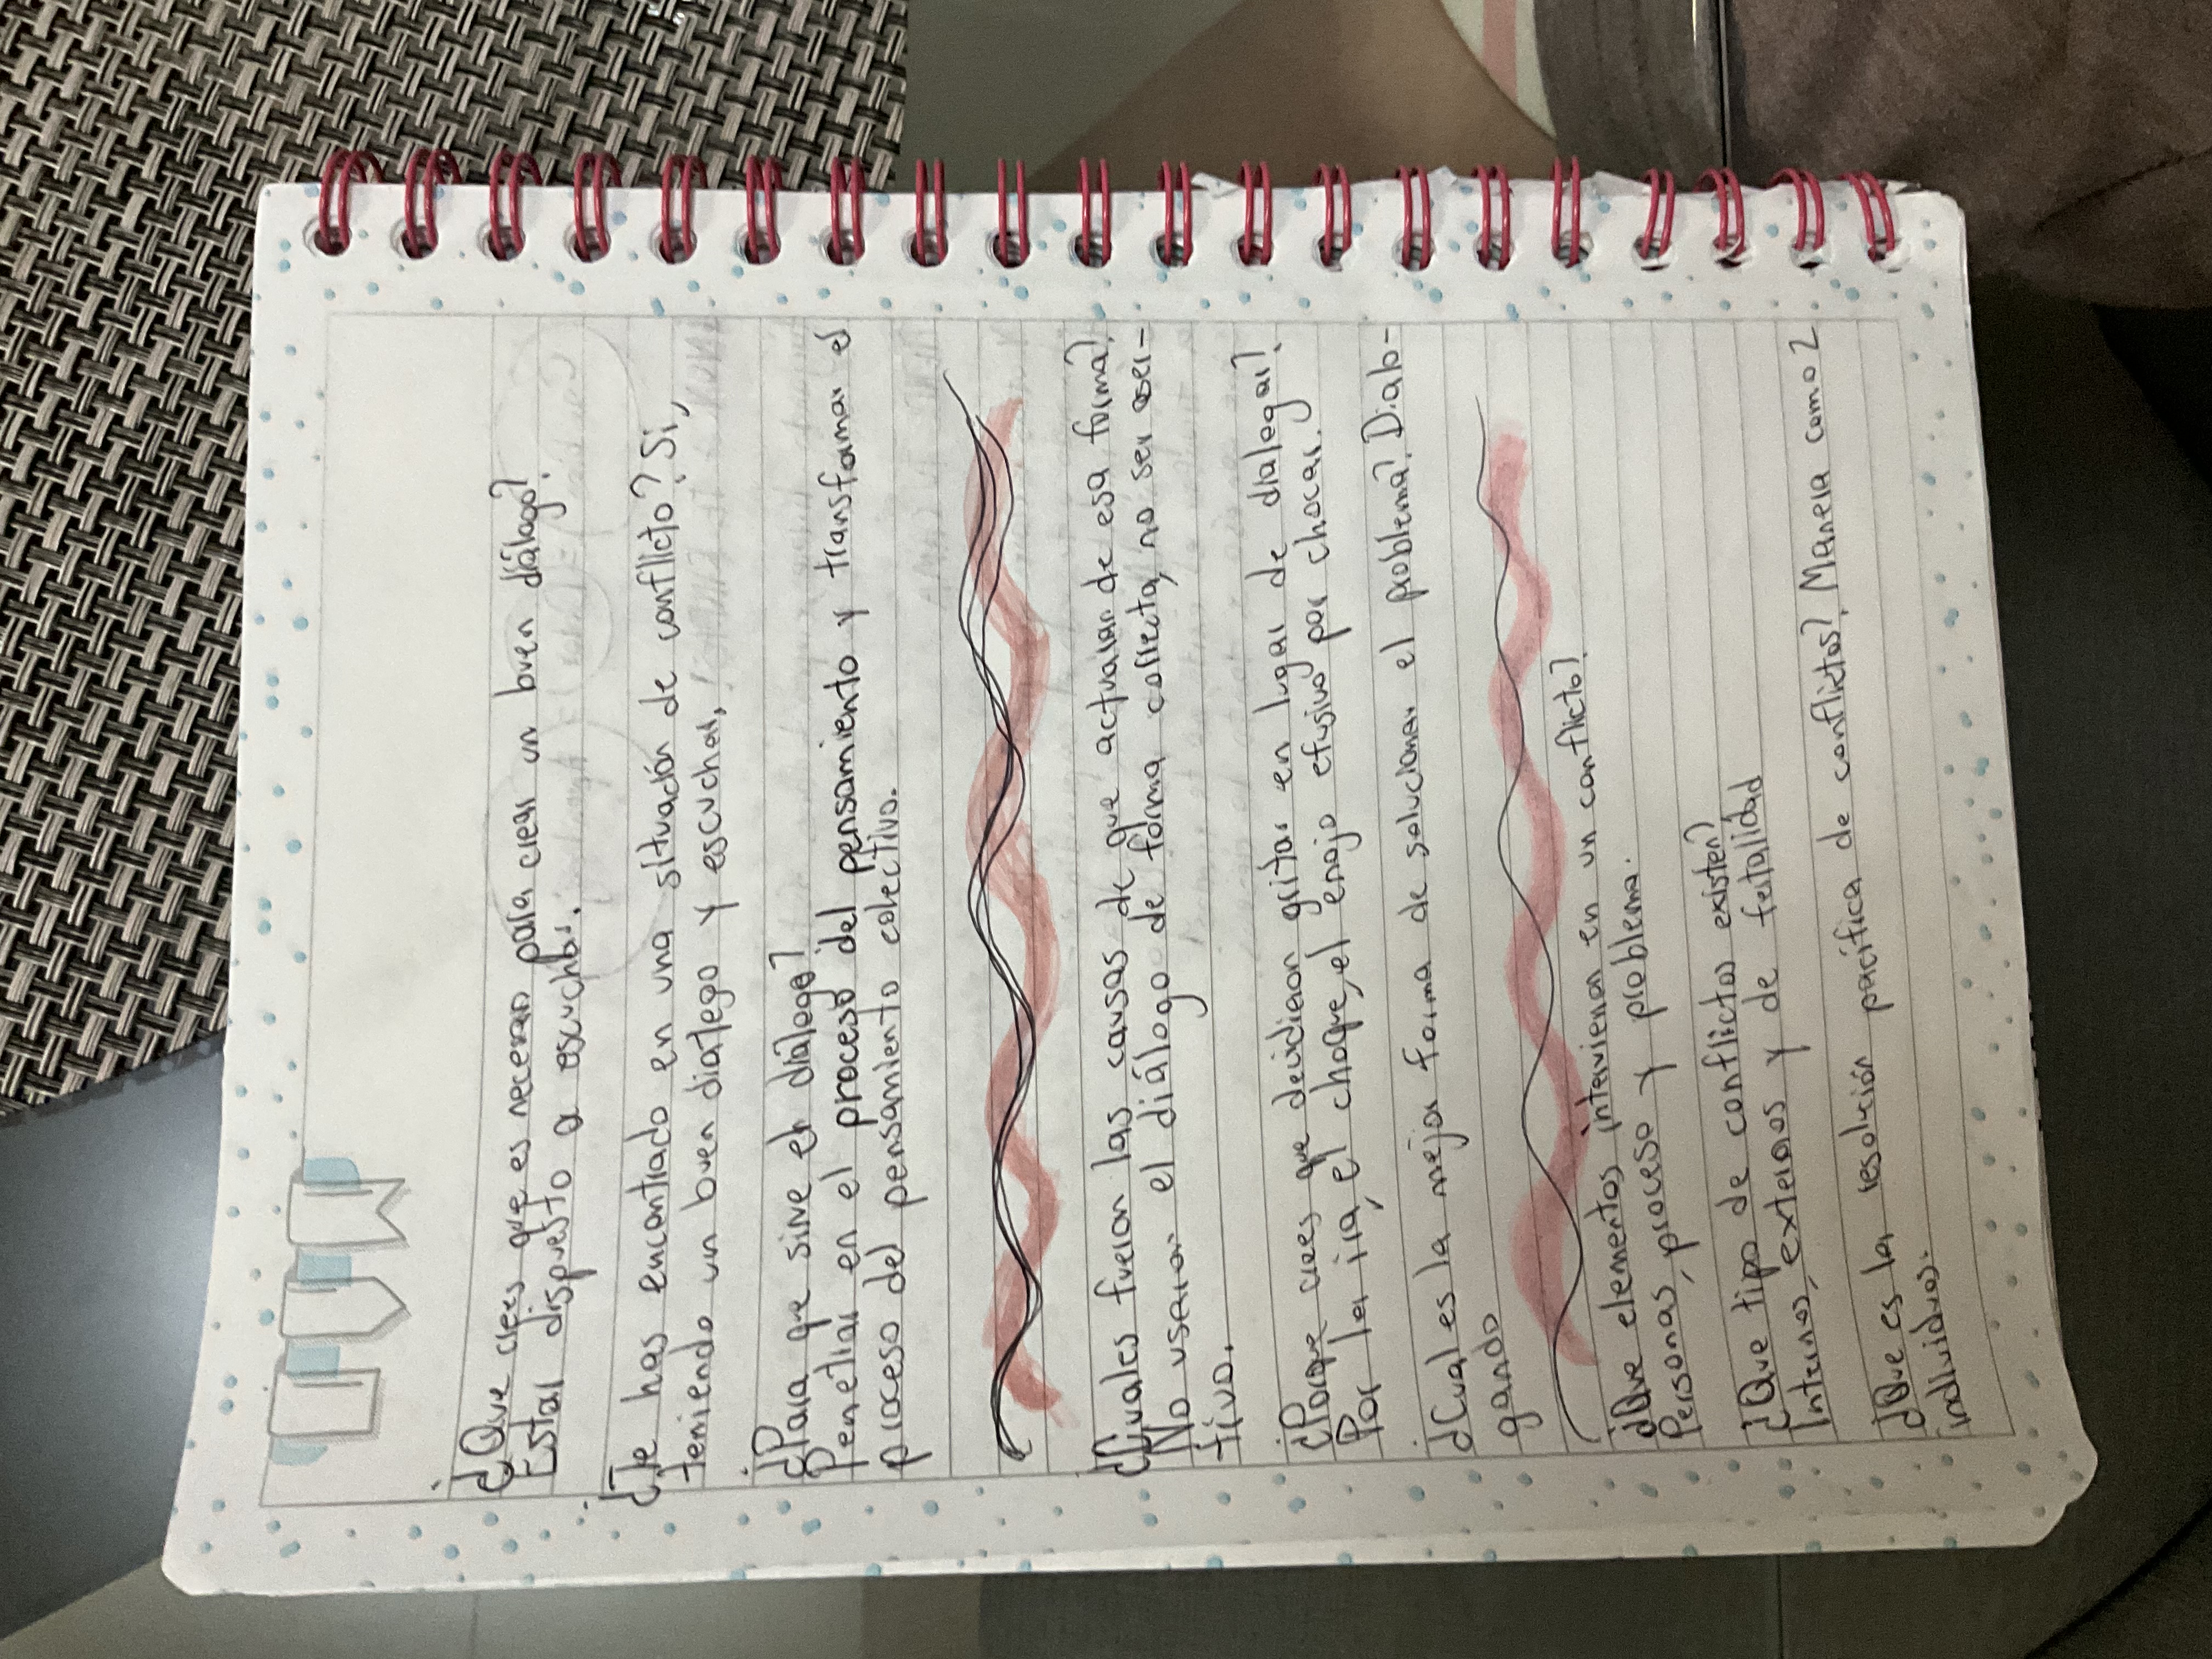 ¿Que crees que es neceran para crear un buen diálogo?
Estar dispuesto a escuchar.
¿Te has encontrado en una situación de conflicto? Si,
teniendo un buen dialego y escuchar.
¿Para que sirve el diálego?
Penetrar en el proceso del pensamiento y transfomar el
proceso del pensamiento colectivo.
¿Cuales fueron las causas de que actuaran de esa forma?
No usaron el diálogo de forma correcta, no ser aser-
tivo.
¿Porque crees que decidieron gritar en lugar de dialegar?
Por la ira, el choque, el enojo efusivo por chocar.
¿Cual es la mejor forma de solucionar el problema? Dialo-
gando
¿Que elementos intervienen en un conflicto?
Personas, proceso y problema.
¿Que tipo de conflictos existen?
Internos, externos y de fatalidad
¿Que es la resolución pacífica de conflictos? Manera como 2
individuos.